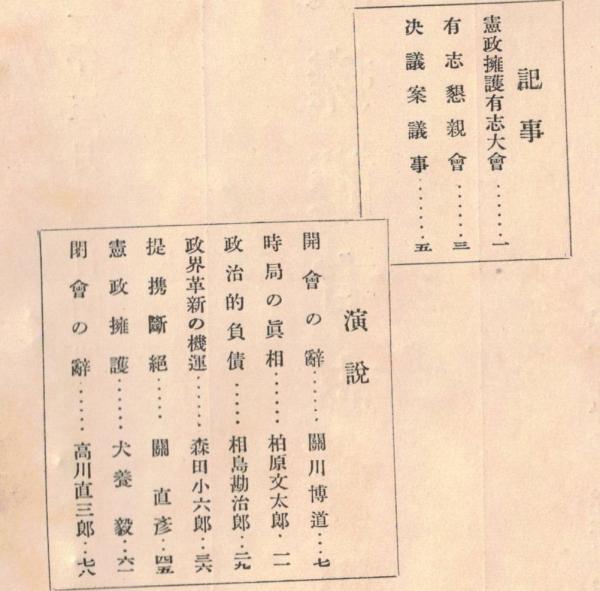 記事
憲政擁護有志大會……一
有志懇親會……三
决議案議事……五
演說
開會の辭……關川博道…七
時局の眞相……柏原文太郎・一一
政治的負債……相島勘治郎・二九
政界革新の機運……森田小六郎・三六
提携斷絕……關直彥…四五
憲政擁護……犬養毅…六一
閉會の辭……高川直三郎・七八